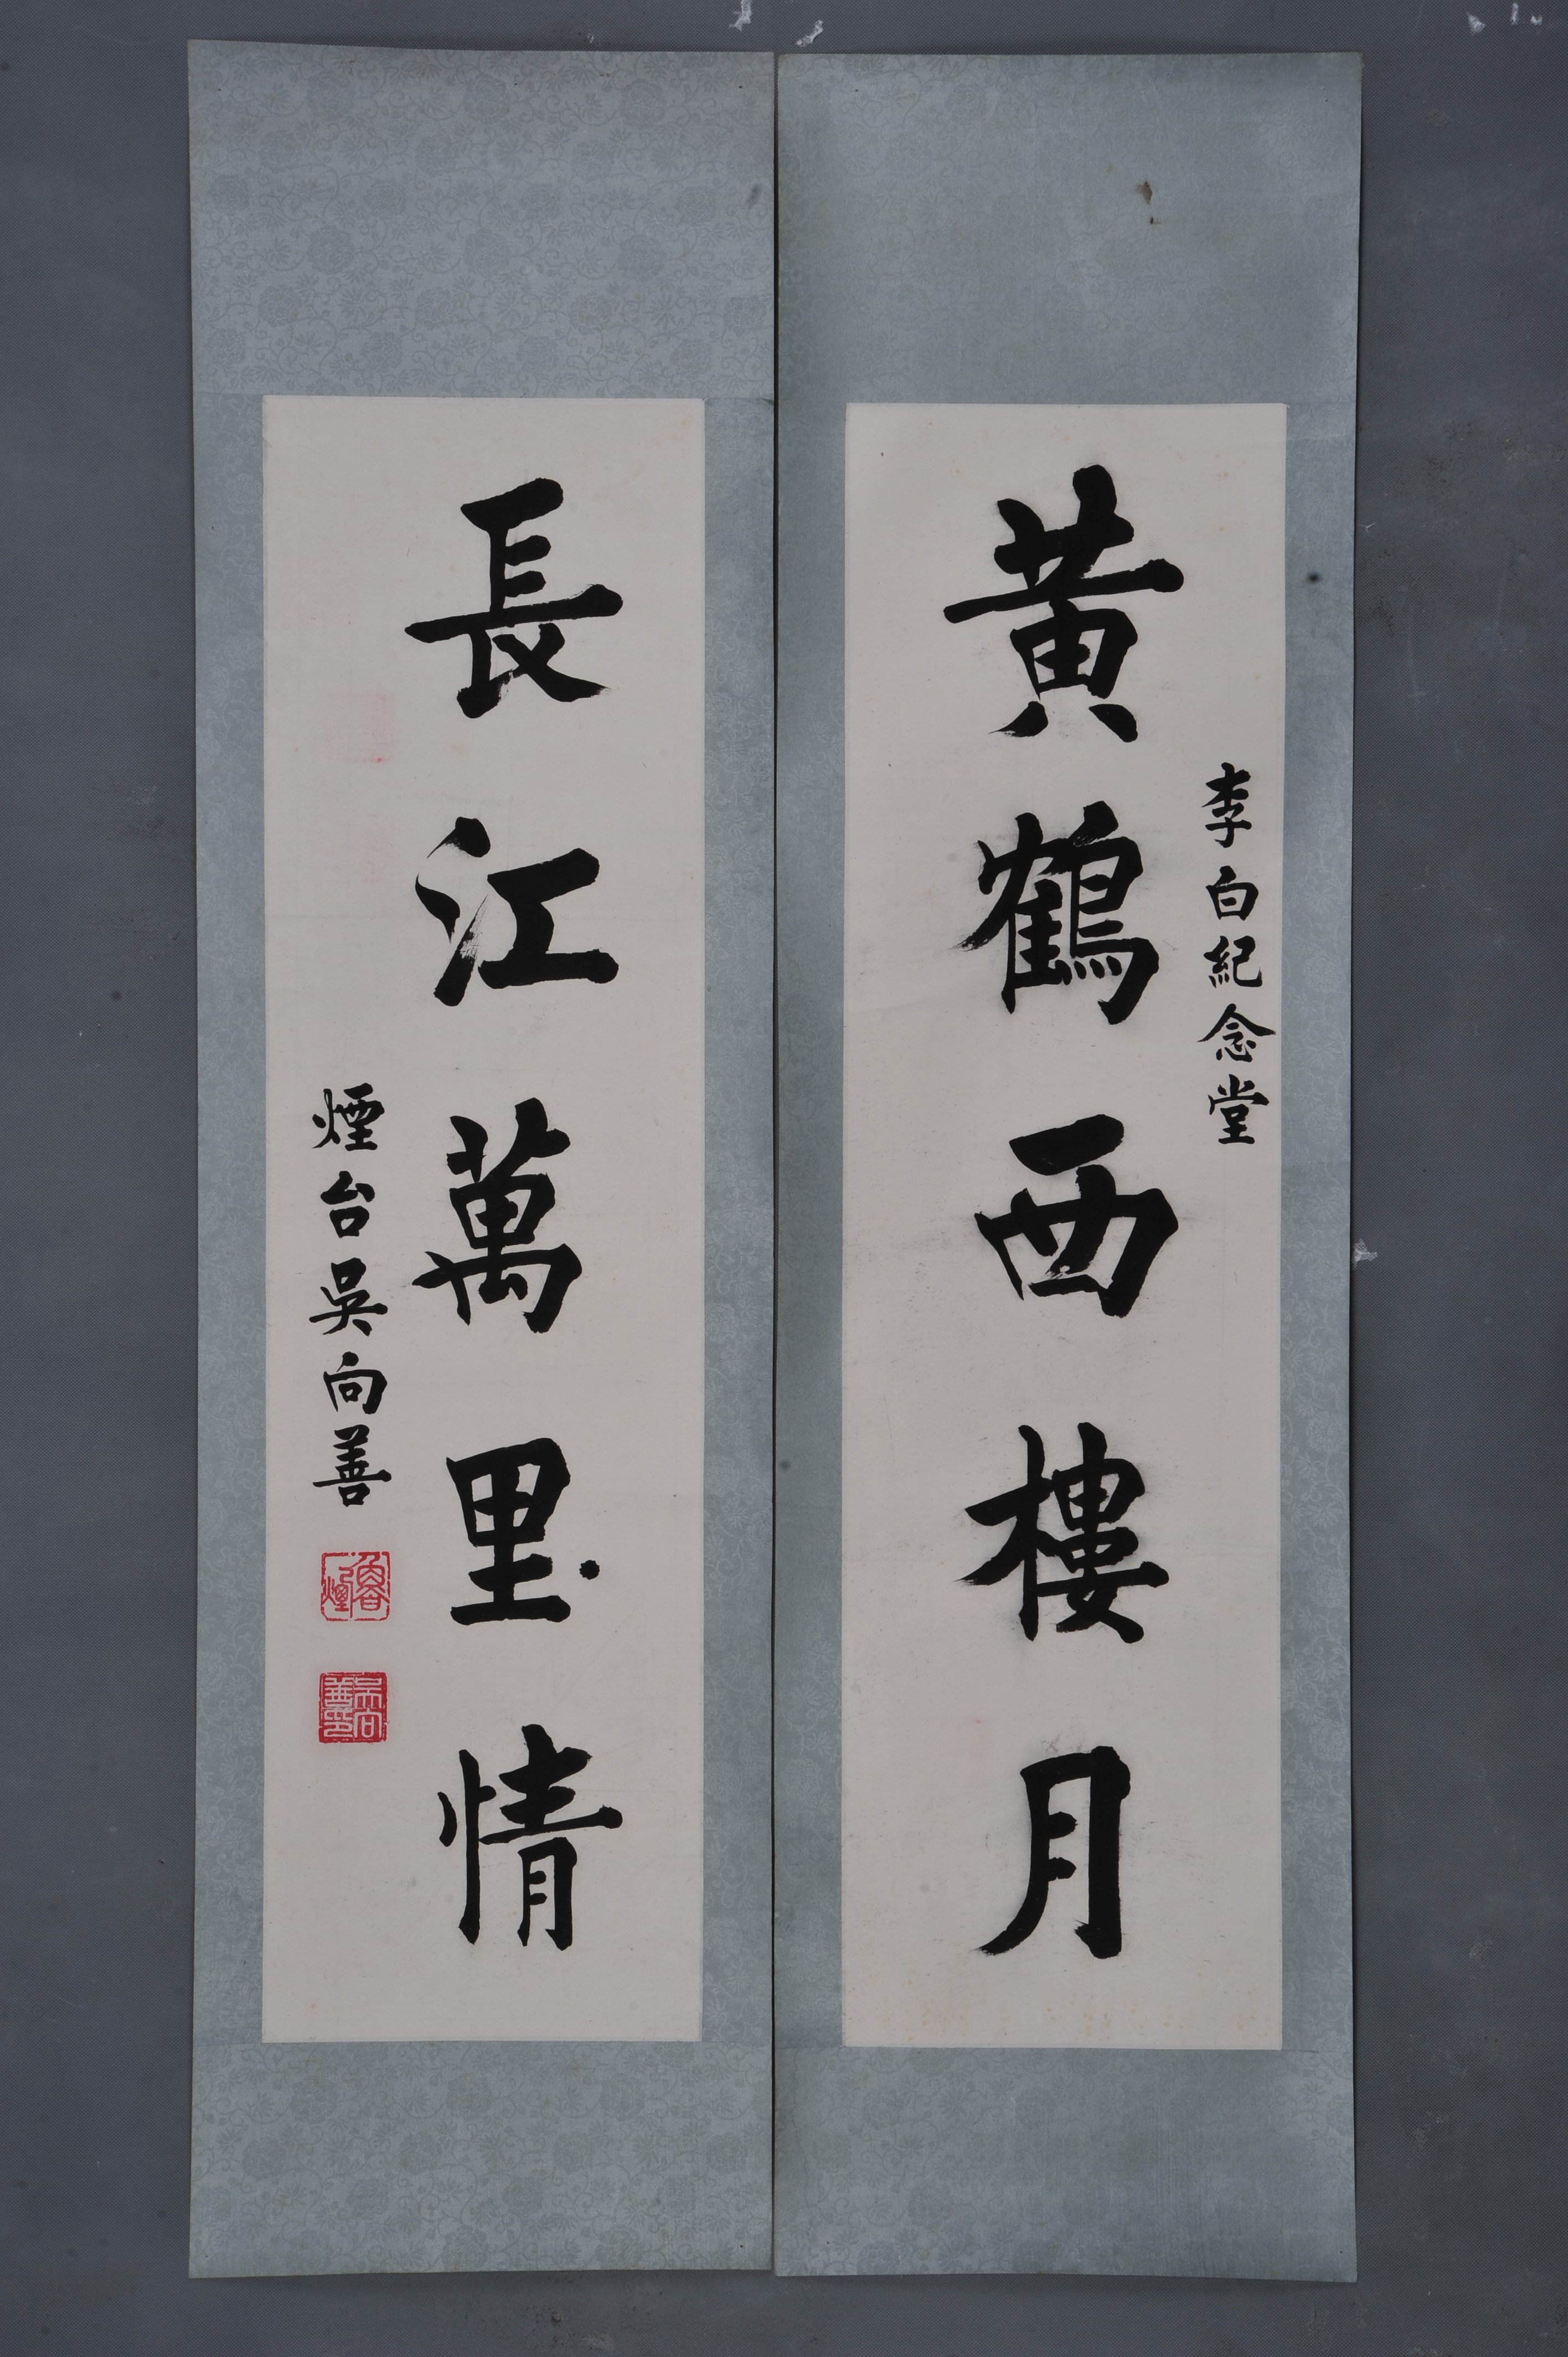 李白紀念堂
黃鶴西樓月
長江萬里情
煙台吳向善
吳向善印